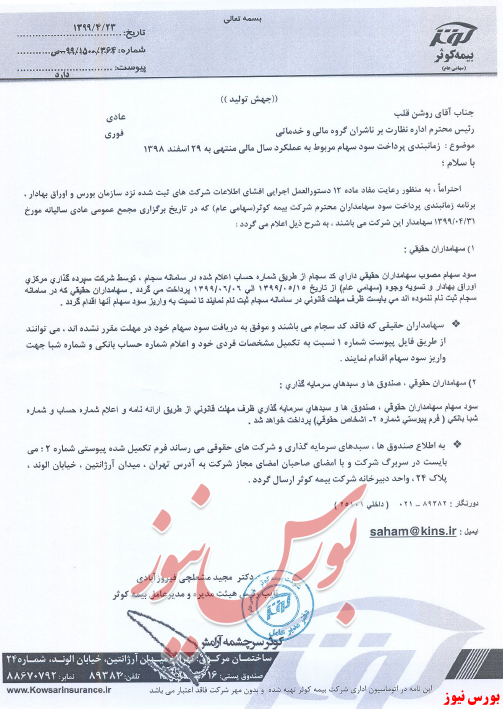 بسمه تعالی
تاریخ: ۱۳۹۹/۴/۲۳
شماره: ۹۹/۱۵۰۰/۳۶۴-ص
پیوست: دارد
بیمه کوثر
(سهامی عام)
((جهش تولید))
جناب آقای روشن قلب
عادی
رئیس محترم اداره نظارت بر ناشران گروه مالی و خدماتی
فوری
موضوع : زمانبندی پرداخت سود سهام مربوط به عملکرد سال مالی منتهی به ۲۹ اسفند ۱۳۹۸
با سلام ؛
احتراماً، به منظور رعایت مفاد ماده ۱۲ دستورالعمل اجرایی افشای اطلاعات شرکت های ثبت شده نزد سازمان بورس و اوراق بهادار ،
برنامه زمانبندی پرداخت سود سهامداران محترم شرکت بیمه کوثر(سهامی عام) که در تاریخ برگزاری مجمع عمومی عادی سالیانه مورخ
۱۳۹۹/۰۴/۳۱ سهامدار این شرکت می باشند ، به شرح ذیل اعلام می گردد :
۱) سهامداران حقیقی :
سود سهام مصوب سهامداران حقیقی دارای کد سجام از طریق شماره حساب اعلام شده در سامانه سجام ، توسط شرکت سپرده گذاری مرکزی
اوراق بهادار و تسویه وجوه (سهامی عام) از تاریخ ۱۳۹۹/۰۵/۱۵ الی ۱۳۹۹/۰۶/۰۶ پرداخت می گردد . سهامداران حقیقی که در سامانه
سجام ثبت نام ننموده اند می بایست ظرف مهلت قانونی در سامانه سجام ثبت نام نمایند تا نسبت به واریز سود سهام آنها اقدام گردد .
❖ سهامداران حقیقی که فاقد کد سجام می باشند و موفق به دریافت سود سهام خود در مهلت مقرر نشده اند ، می توانند
از طریق فایل پیوست شماره ۱ نسبت به تکمیل مشخصات فردی خود و اعلام شماره حساب بانکی و شماره شبا جهت
واریز سود سهام اقدام نمایند .
۲) سهامداران حقوقی ، صندوق ها و سبدهای سرمایه گذاری :
سود سهام سهامداران حقوقی ، صندوق ها و سبدهای سرمایه گذاری ظرف مهلت قانونی از طریق ارائه نامه و اعلام شماره حساب و شماره
شبا بانکی ( فرم پیوستی شماره ۲- اشخاص حقوقی) پرداخت خواهد شد .
❖ به اطلاع صندوق ها ، سبدهای سرمایه گذاری و شرکت های حقوقی می رساند فرم تکمیل شده پیوستی شماره ۲ ؛ می
بایست در سربرگ شرکت و با امضای صاحبان امضای مجاز شرکت به آدرس تهران ، میدان آرژانتین ، خیابان الوند ،
پلاک ۲۴، واحد دبیرخانه شرکت بیمه کوثر ارسال گردد .
دورنگار : ۸۹۳۸۲ – ۰۲۱ ( داخلی ۲۵۱۰۱ )
ایمیل : saham@kins.ir
بورس نیوز
دکتر مجید مشعلچی فیروزآبادی
نایب رئیس هیئت مدیره و مدیرعامل بیمه کوثر
دفتر مدیر عامل
کوثر سرچشمه آرامش
ساختمان مرکزی: تهران، میدان آرژانتین، خیابان الوند، شماره ۲۴
صندوق پستی: تلفن: ۸۹۳۸۲ نمابر: ۸۸۶۷۰۷۹۲
www.Kowsarinsurance.ir
این نامه در اتوماسیون اداری شرکت بیمه کوثر تهیه شده و بدون مهر شرکت فاقد اعتبار می باشد
بورس نیوز